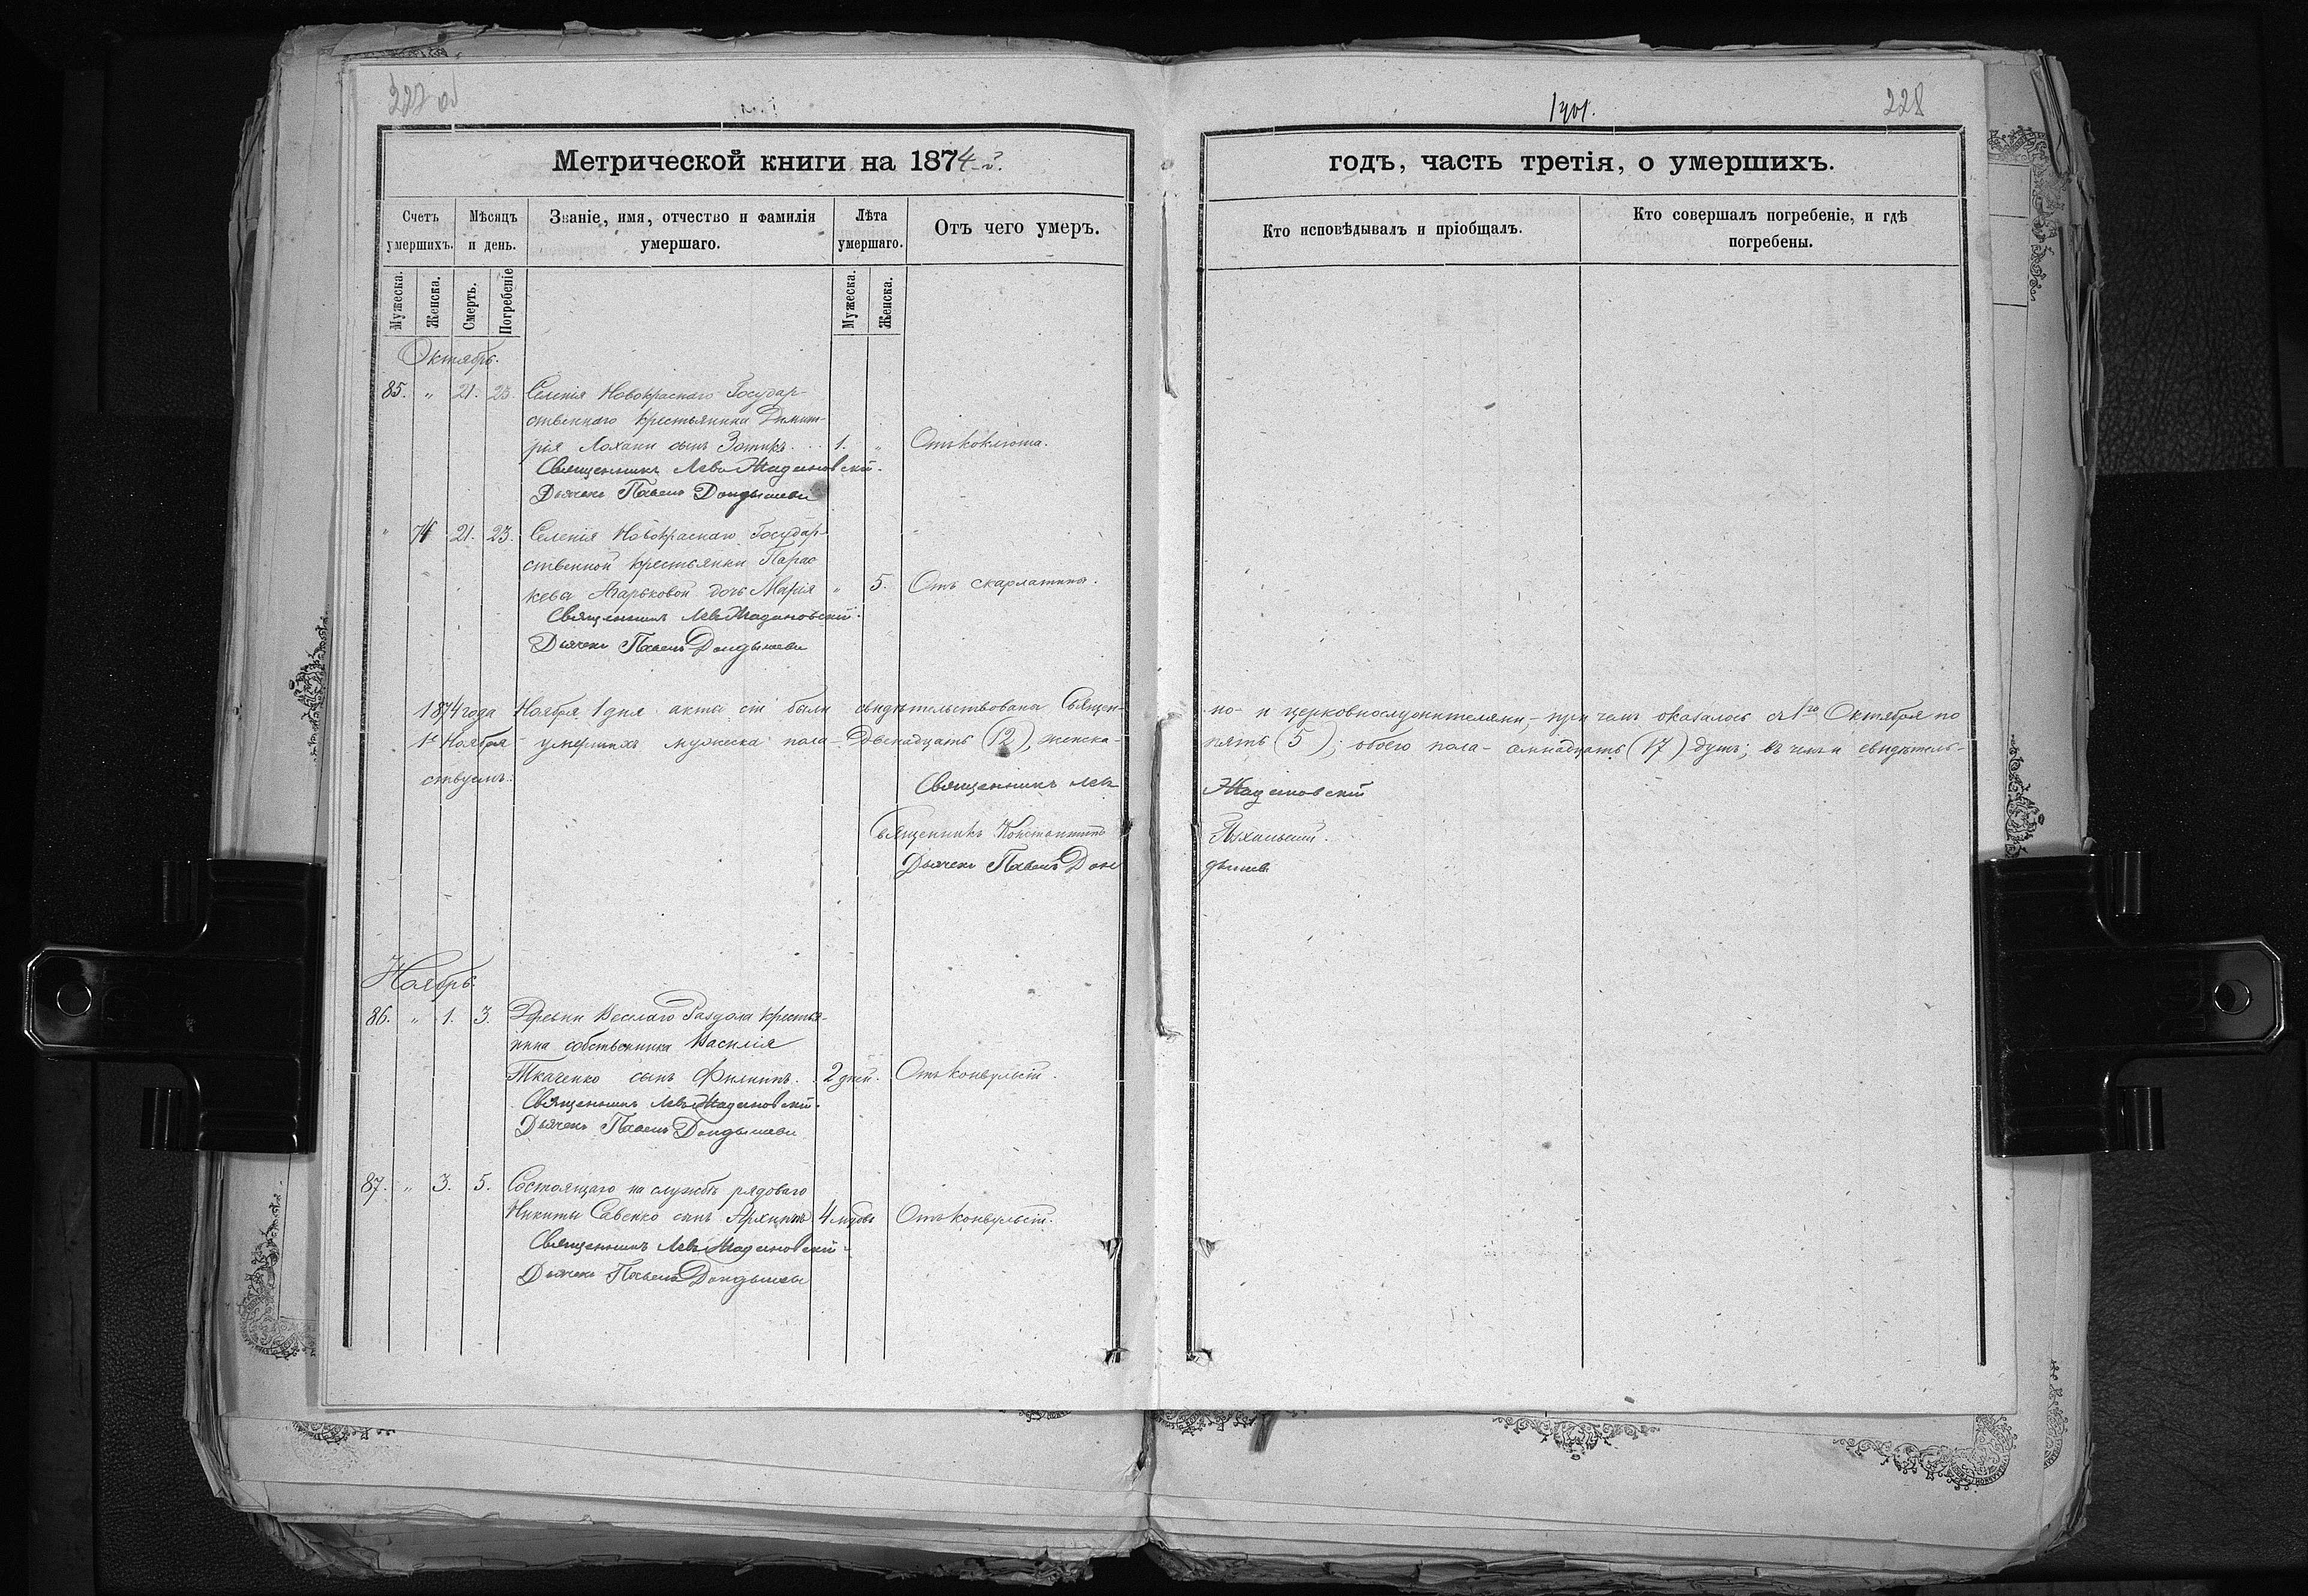 227 об
1901.
228
Метрической книги на 1874-й.
годъ, часть третія, о умершихъ.
Счетъ умершихъ.
Мѣсяцъ и день.
Званіе, имя, отчество и фамилія умершаго.
Лѣта умершаго.
Отъ чего умеръ.
Кто исповѣдывалъ и пріобщалъ.
Кто совершалъ погребеніе, и гдѣ погребены.
Мужеска.
Женска.
Смерть.
Погребеніе
Мужеска.
Женска.
Октябрь.
85. „ 21. 23. Селенія Новокраснаго Государ-
ственнаго крестьянина Димит-
рія Лохани сынъ Зотикъ. 1. „ Отъ коклюша.
Священникъ Левъ
Дьячекъ Павелъ
„ 74 21. 23. Селенія Новокраснаго Государ-
ственной крестьянки Парас
кевы Жарьковой дочь Марія „ 5. Отъ скарлатины.
Священникъ Левъ
Дьячекъ Павелъ
1874 года Ноября 1 дня акты сіи были свидѣтельствованы Священ- но- и церковнослужителями,- при чемъ оказалось съ 1го Октября по
1е Ноября - умершихъ мужеска пола - двѣнадцать (12), женска - пять (5); обоего пола - семнадцать (17) душъ; въ чемъ и свидѣтель-
ствуемъ.
Священникъ Левъ
Священникъ Константинъ
Дьячекъ Павелъ
Ноябрь.
86. „ 1. 3. Деревни Веселаго Раздола крестья-
нина собственника Василія
Ткаченко сынъ Филиппъ. 2 дней. Отъ конвульсій.
Священникъ Левъ
Дьячекъ Павелъ
87. „ 3. 5. Состоящаго на службѣ рядоваго
Никиты Савенко сынъ Архиппъ 4 мѣсяц. Отъ конвульсій.
Священникъ Левъ
Дьячекъ Павелъ